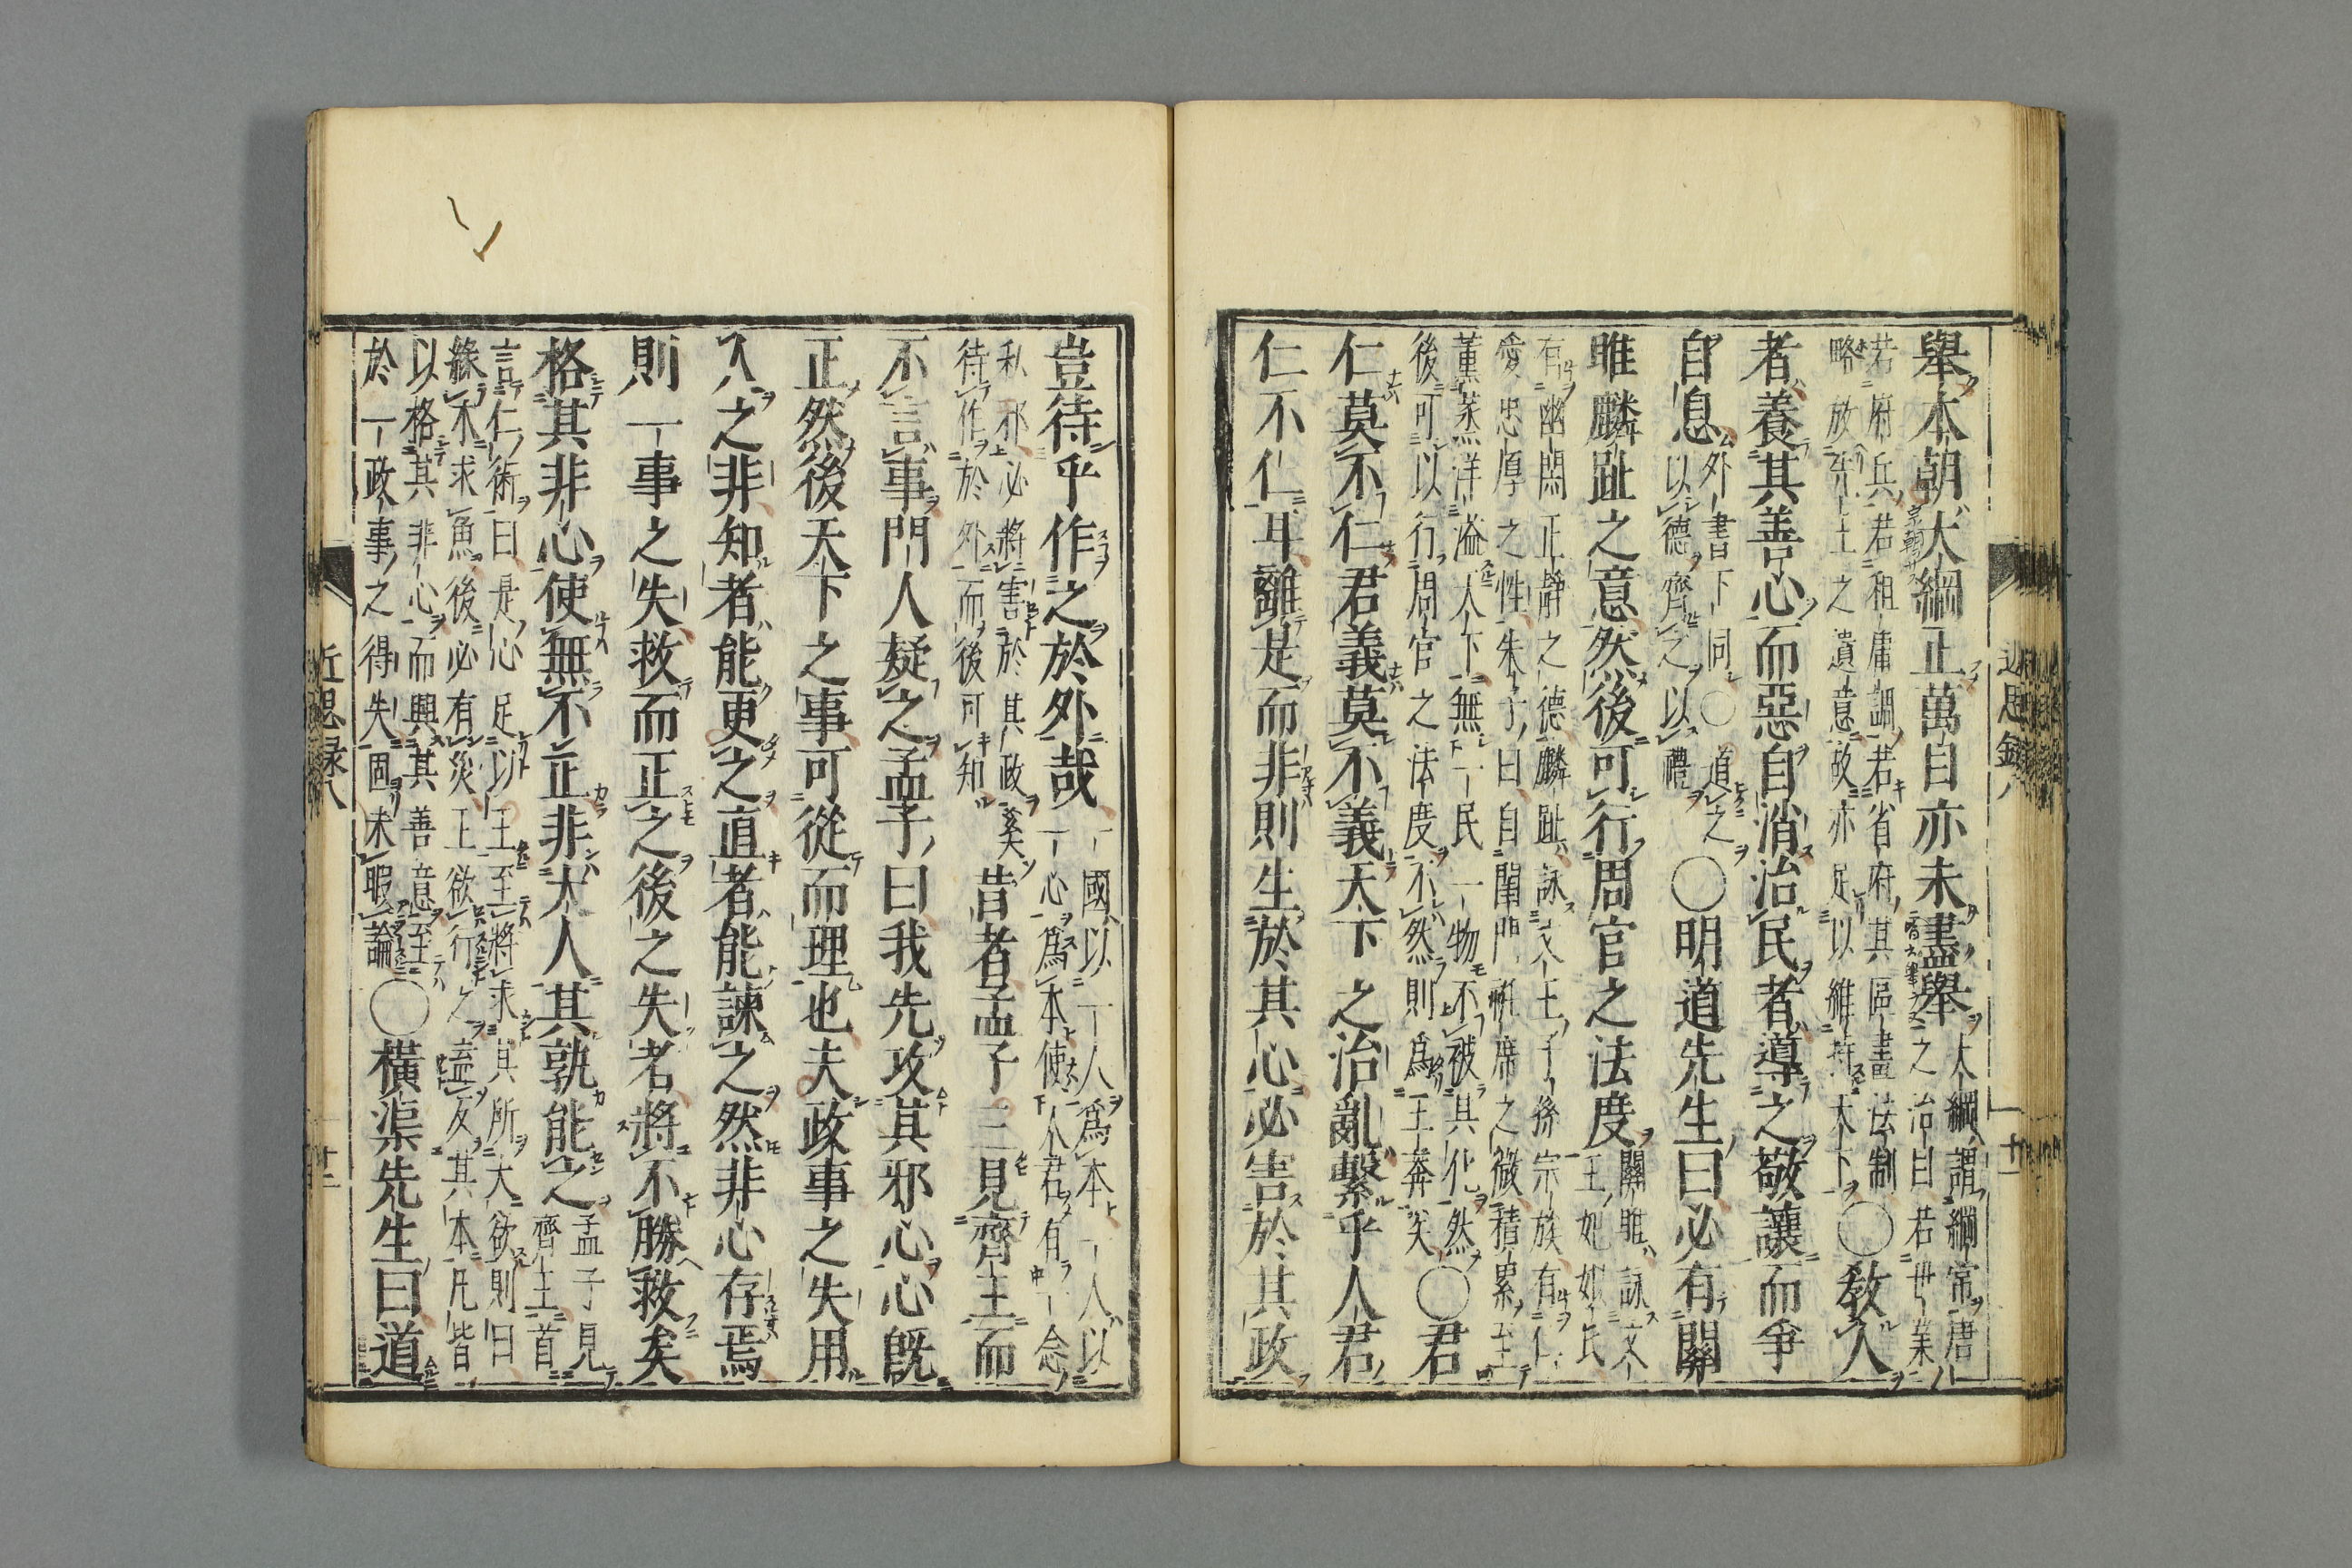 近思錄八
十一
舉本朝大綱正萬目亦未盡舉
大綱謂綱常唐
之治目若世業
若府兵若租庸調若省府其區畫法制
略放先王之遺意故亦足以維持天下
○教人
者養其善心而惡自消治民者導之敬讓而爭
自息
外書下同○道之
以德齊之以禮
○明道先生曰必有關
雎麟趾之意然後可行周官之法度
關雎詠文
王妃姒氏
有幽閑正靜之德麟趾詠文王子孫宗族有仁
愛忠厚之性朱子曰自閨門袵席之微積累至
薰蒸洋溢天下無一民一物不被其化然
後可以行周官之法度不然則爲王莽矣
○君
仁莫不仁君義莫不義天下之治亂繫乎人君
仁不仁耳離是而非則生於其心必害於其政
豈待乎作之於外哉
一國以一人爲本一人以
一心爲本使人君有一念
私邪必將害於其政奚
待作於外而後可知
昔者孟子三見齊王而
不言事門人疑之孟子曰我先攻其邪心心旣
正然後天下之事可從而理也夫政事之失用
人之非知者能更之直者能諫之然非心存焉
則一事之失救而正之後之失者將不勝救矣
格其非心使無不正非大人其孰能之
孟子見
齊王首
言仁術曰是心足以王至將求其所大欲則曰
緣木求魚後必有災正欲行之盍反其本凡皆
以格其非心而興其善意至
於一政事之得失固未暇論
○橫渠先生曰道
近思録八
十二